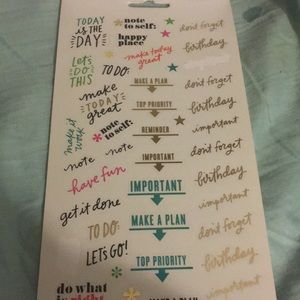 TODAY
is THE
DAY
note
to self:
don't forget
happy
place
make today
great
birthday
LET'S
DO
THIS
TO DO:
don't forget
make
TODAY
great
MAKE A PLAN
birthday
TOP PRIORITY
make it
work
note
to self:
REMINDER
important
note
note
IMPORTANT
birthday
have fun
IMPORTANT
important
get it done
MAKE A PLAN
don't forget
TO DO:
LET'S GO!
TOP PRIORITY
birthday
do what
is right
MAKE A PLAN
important